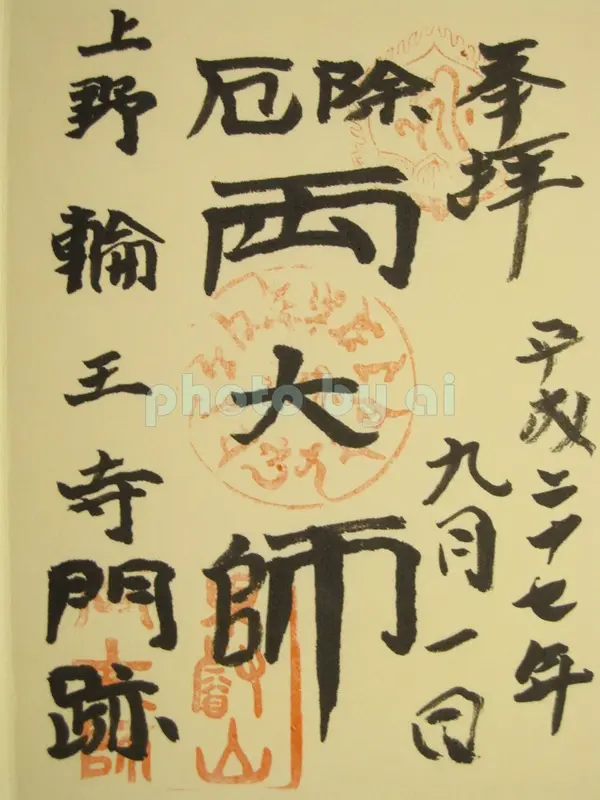 奉拝
平成二十七年
九月一日
除厄
両大師
上野輪王寺門跡
photo by ai